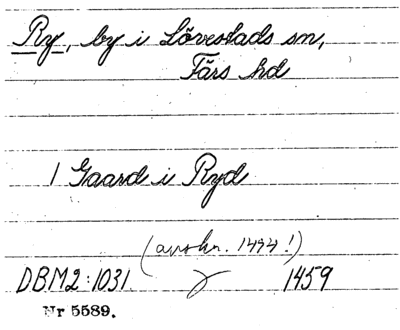 Ry, by i Lövestads sn,
Färs hd
1 Gaard i Ryd
(avskr. 1494!)
DBM2:1031. 1459
Nr 5589.